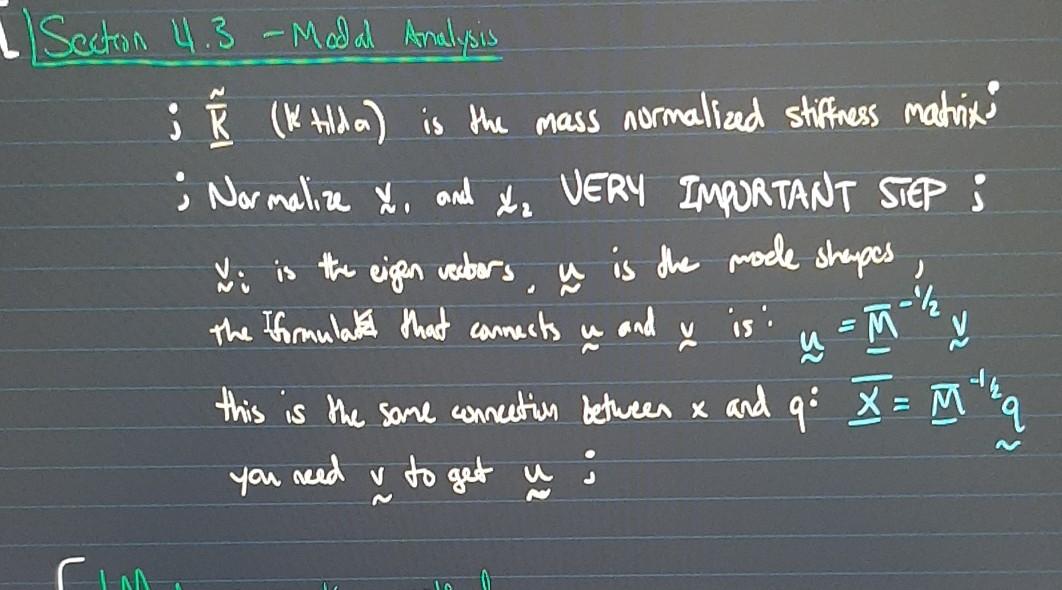 Section 4.3 - Modal Analysis
; K̃ (K tilda) is the mass normalized stiffness matrix ;
; Normalize v₁ and v₂ VERY IMPORTANT STEP ;
vᵢ is the eigen vectors, u is the mode shapes,
the formula that connects u and v is: u = M^-1/2 v
this is the same connection between x and q: X = M^-1/2 q
you need v to get u ;